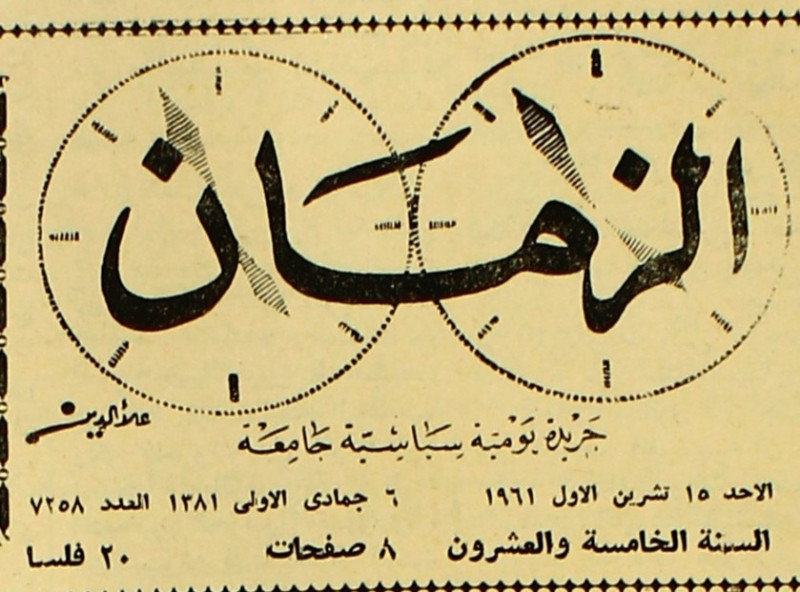 الزمان
جريدة يومية سياسية جامعة
علاءالدين
الاحد ١٥ تشرين الاول ١٩٦١ ٦ جمادى الاولى ١٣٨١ العدد ٧٢٥٨
السنة الخامسة والعشرون ٨ صفحات ٢٠ فلسا